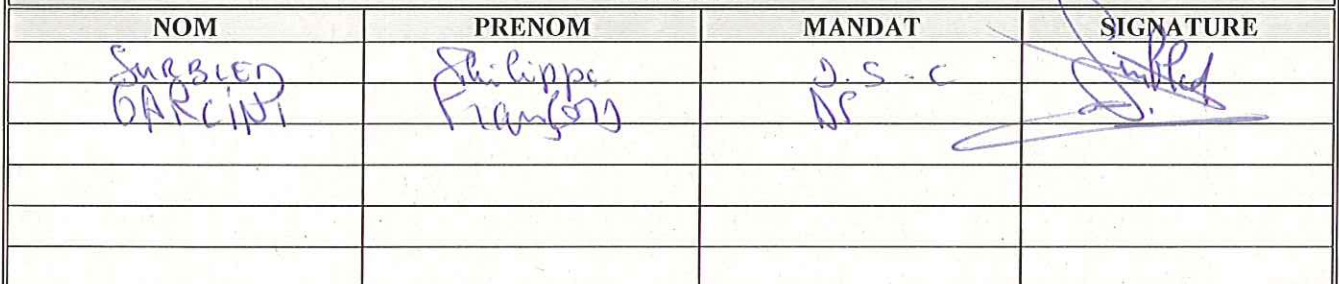 NOM PRENOM MANDAT SIGNATURE
SURBLED Philippe D.S.C
GARCINI François DP